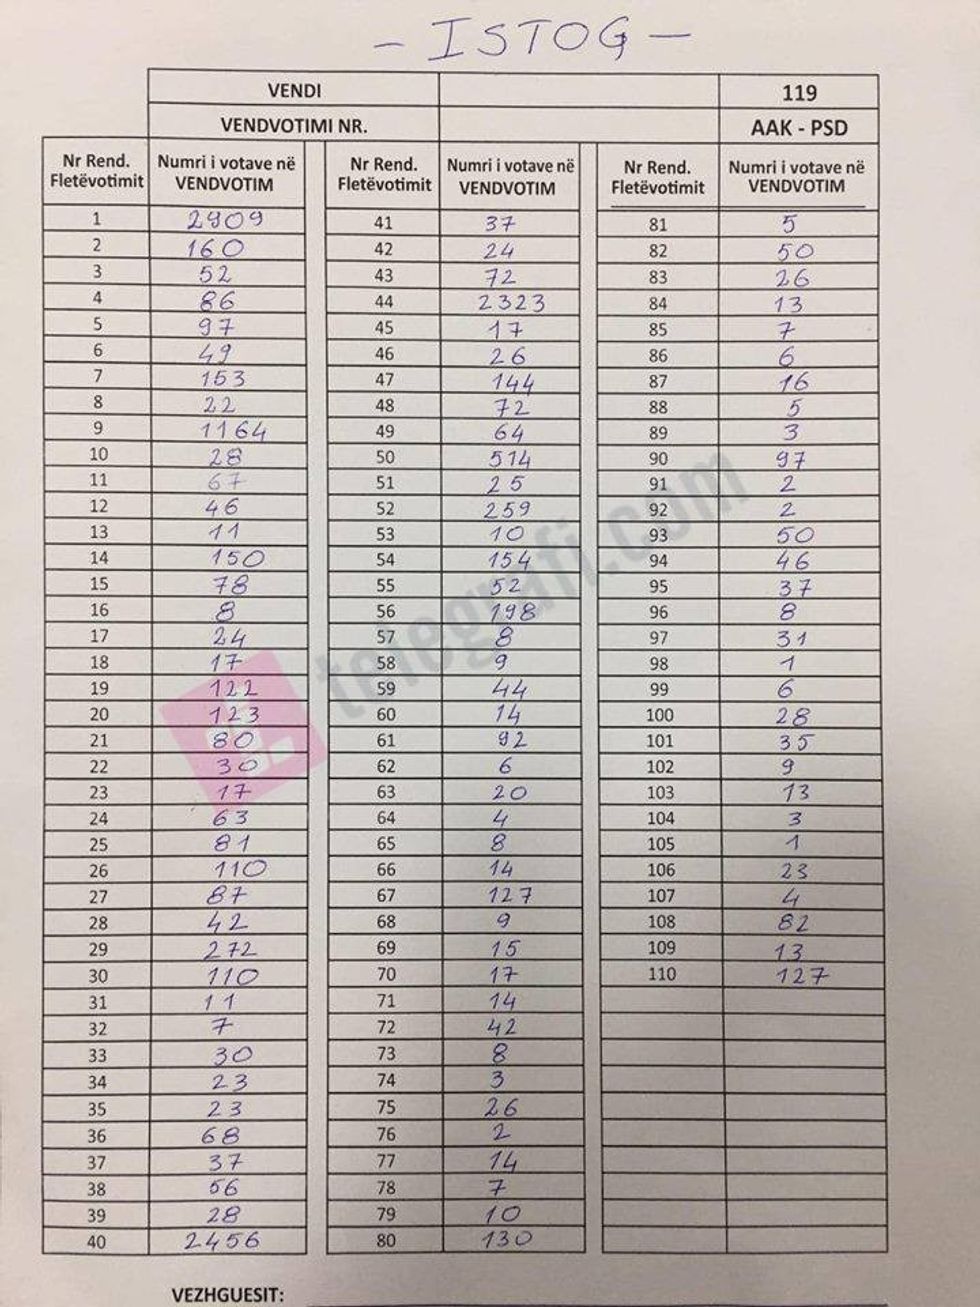 - ISTOG -
VENDI 119
VENDVOTIMI NR. AAK - PSD
Nr Rend. Numri i votave në Nr Rend. Numri i votave në Nr Rend. Numri i votave në
Fletëvotimit VENDVOTIM Fletëvotimit VENDVOTIM Fletëvotimit VENDVOTIM
1 2909 41 37 81 5
2 160 42 24 82 50
3 52 43 72 83 26
4 86 44 2323 84 13
5 97 45 17 85 7
6 49 46 26 86 6
7 153 47 144 87 16
8 22 48 72 88 5
9 1164 49 64 89 3
10 28 50 514 90 97
11 67 51 25 91 2
12 46 52 259 92 2
13 11 53 10 93 50
14 150 54 154 94 46
15 78 55 52 95 37
16 8 56 198 96 8
17 24 57 8 97 31
18 17 58 9 98 1
19 122 59 44 99 6
20 123 60 14 100 28
21 80 61 92 101 35
22 30 62 6 102 9
23 17 63 20 103 13
24 63 64 4 104 3
25 81 65 8 105 1
26 110 66 14 106 23
27 87 67 127 107 4
28 42 68 9 108 82
29 272 69 15 109 13
30 110 70 17 110 127
31 11 71 14
32 7 72 42
33 30 73 8
34 23 74 3
35 23 75 26
36 68 76 2
37 37 77 14
38 56 78 7
39 28 79 10
40 2456 80 130
VEZHGUESIT:
telegrafi.com